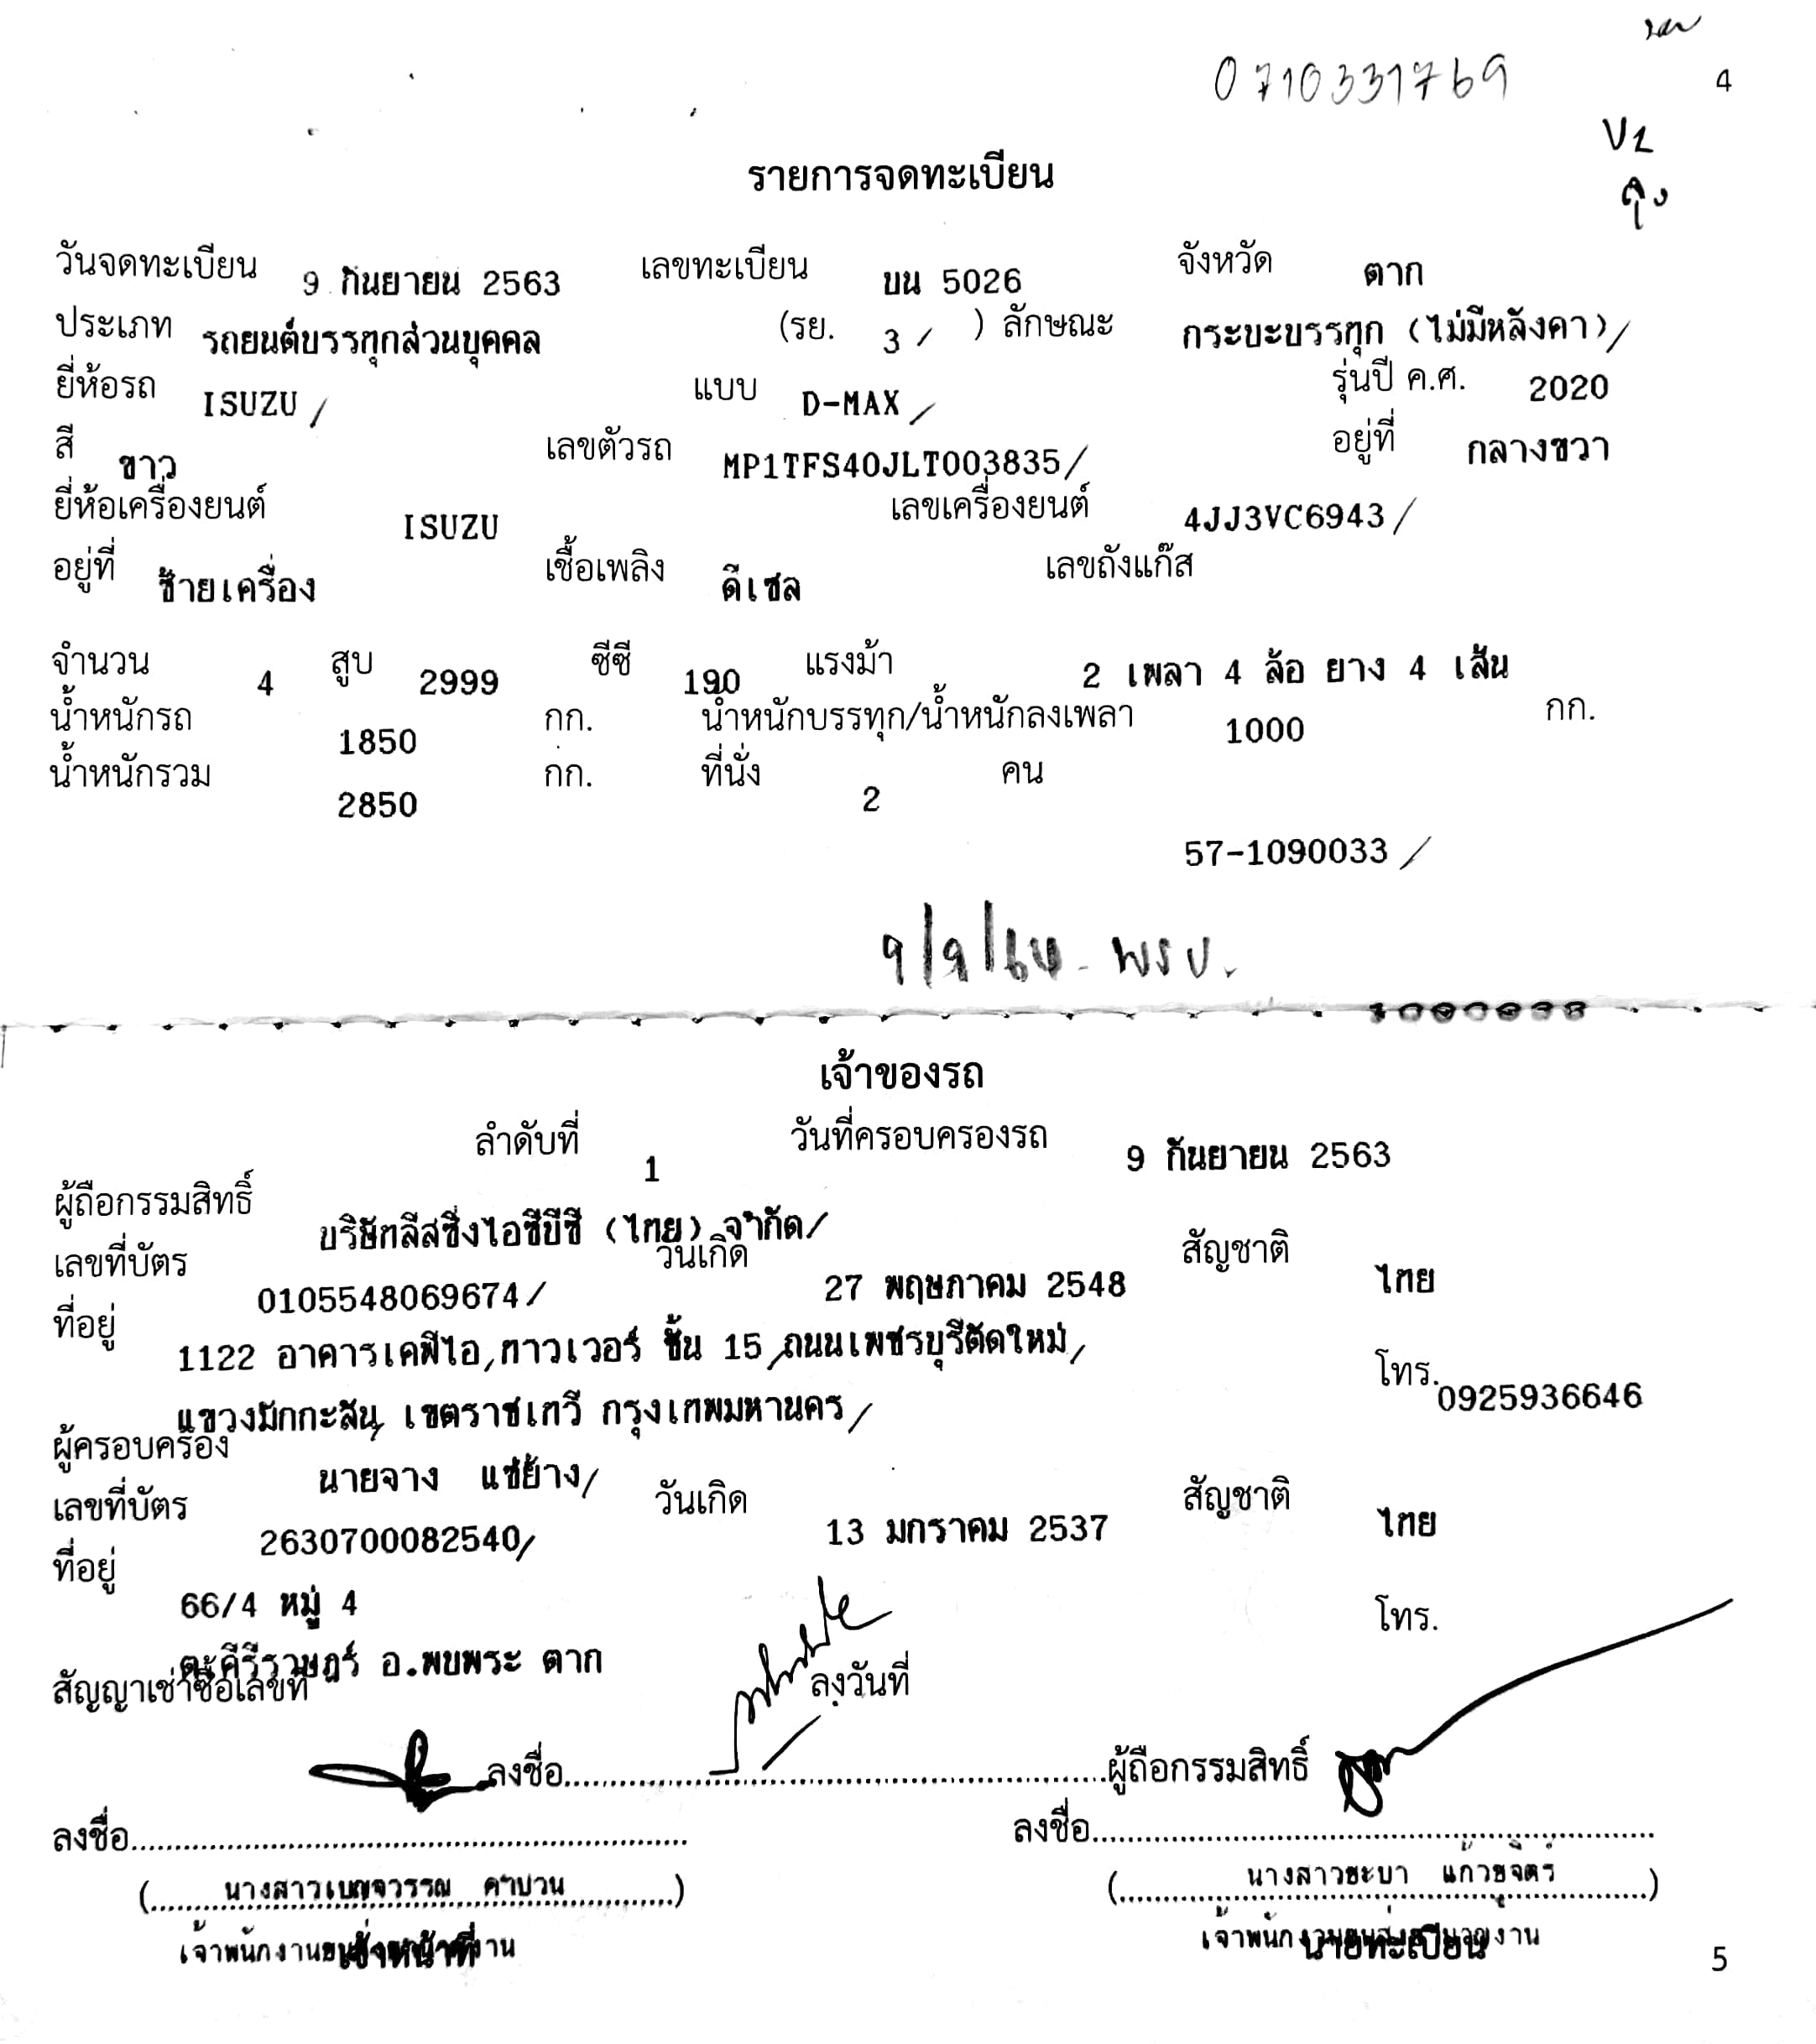 0710331769
4
รายการจดทะเบียน
วันจดทะเบียน 9 กันยายน 2563 เลขทะเบียน บน 5026 จังหวัด ตาก
ประเภท รถยนต์บรรทุกส่วนบุคคล (รย. 3 / ) ลักษณะ กระบะบรรทุก (ไม่มีหลังคา)/
ยี่ห้อรถ ISUZU / แบบ D-MAX / รุ่นปี ค.ศ. 2020
สี ขาว เลขตัวรถ MP1TFS40JLT003835/ อยู่ที่ กลางขวา
ยี่ห้อเครื่องยนต์ ISUZU เลขเครื่องยนต์ 4JJ3VC6943/
อยู่ที่ ซ้ายเครื่อง เชื้อเพลิง ดีเซล เลขถังแก๊ส
จำนวน 4 สูบ 2999 ซีซี 190 แรงม้า 2 เพลา 4 ล้อ ยาง 4 เส้น
น้ำหนักรถ 1850 กก. น้ำหนักบรรทุก/น้ำหนักลงเพลา 1000 กก.
น้ำหนักรวม 2850 กก. ที่นั่ง 2 คน
57-1090033 /
9/9/64 พรบ.
เจ้าของรถ
ลำดับที่ 1 วันที่ครอบครองรถ 9 กันยายน 2563
ผู้ถือกรรมสิทธิ์ บริษัทลีสซิ่งไอซีบีซี (ไทย) จำกัด/
เลขที่บัตร 0105548069674/ วันเกิด 27 พฤษภาคม 2548 สัญชาติ ไทย
ที่อยู่ 1122 อาคารเคพีไอ,ทาวเวอร์ ชั้น 15,ถนนเพชรบุรีตัดใหม่,
แขวงมักกะสัน, เขตราชเทวี กรุงเทพมหานคร/ โทร. 0925936646
ผู้ครอบครอง นายจาง แซ่ย้าง/
เลขที่บัตร 2630700082540/ วันเกิด 13 มกราคม 2537 สัญชาติ ไทย
ที่อยู่ 66/4 หมู่ 4 โทร.
ต.คีรีราษฎร์ อ.พบพระ ตาก
สัญญาเช่าซื้อเลขที่ ลงวันที่
ลงชื่อ ผู้ถือกรรมสิทธิ์
ลงชื่อ ลงชื่อ
( นางสาวเบญจวรรณ คำปวน ) ( นางสาวชะบา แก้วชูจิตร์ )
เจ้าพนักงานขนส่งชำนาญงาน เจ้าพนักงานขนส่งชำนาญงาน
เจ้าหน้าที่ นายทะเบียน
5